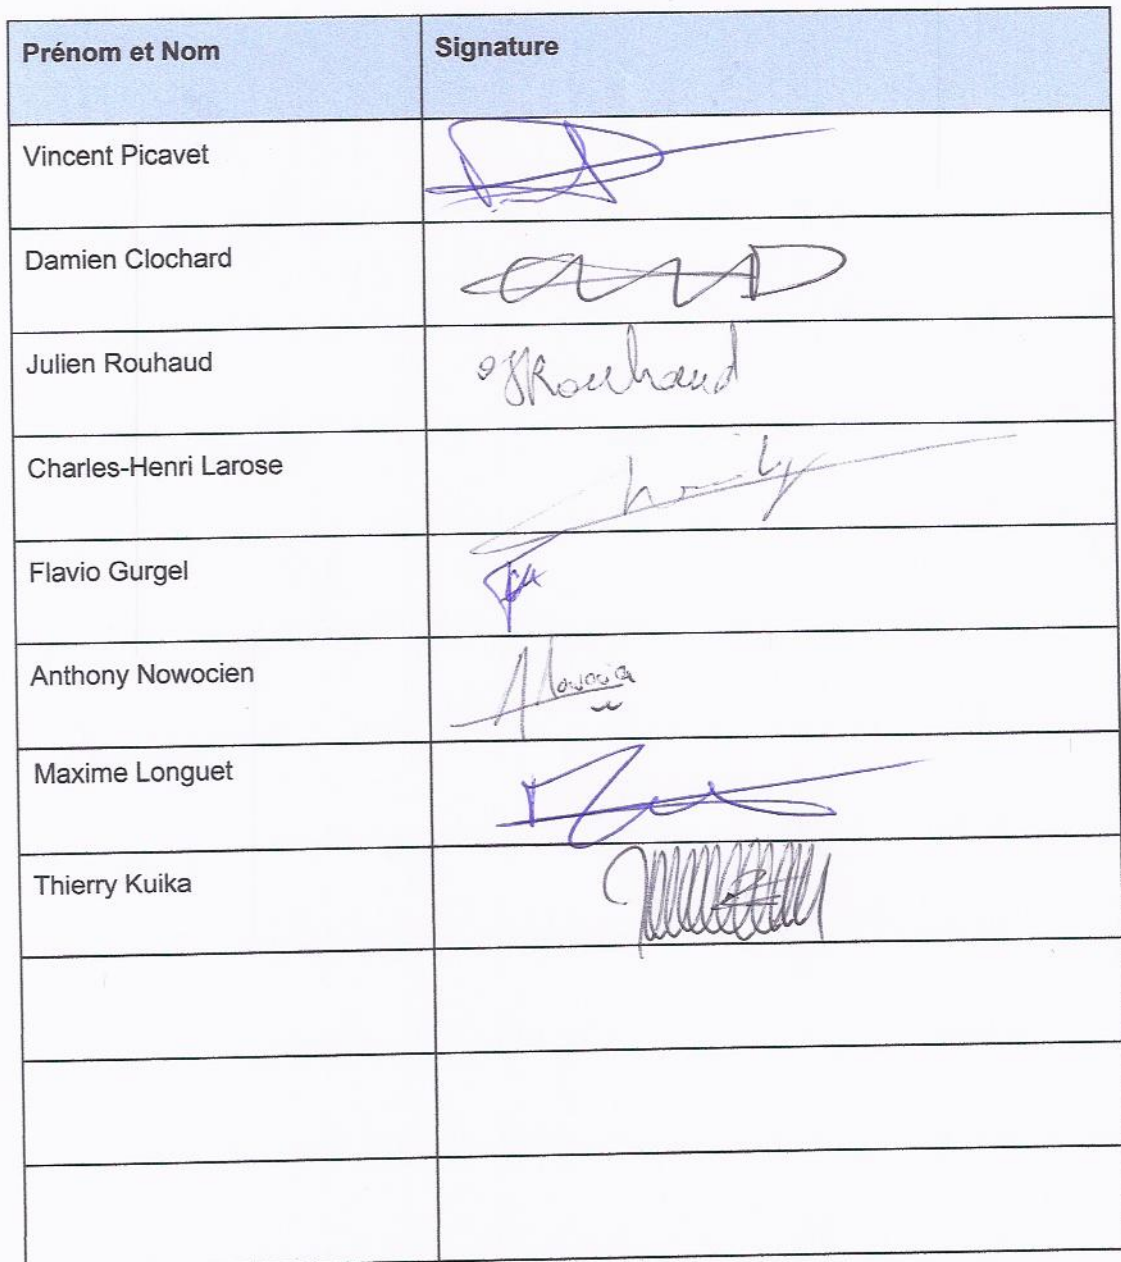 Prénom et Nom Signature
Vincent Picavet
Damien Clochard
Julien Rouhaud JRouhaud
Charles-Henri Larose
Flavio Gurgel
Anthony Nowocien
Maxime Longuet
Thierry Kuika